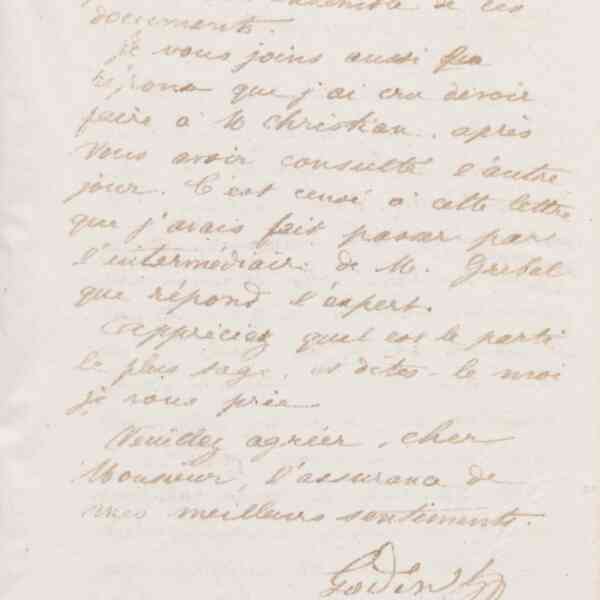 ensemble de ces
documents.
Je vous joins aussi la
réponse que j'ai cru devoir
faire à M Christian, après
vous avoir consulté l'autre
jour. C'est censé à cette lettre
que j'avais fait passer par
l'intermédiaire de M. Grebel
que répond l'expert.
Appréciez quel est le parti
le plus sage, et dites-le moi
je vous prie
Veuillez agréer, cher
Monsieur, l'assurance de
mes meilleurs sentiments.
Godin